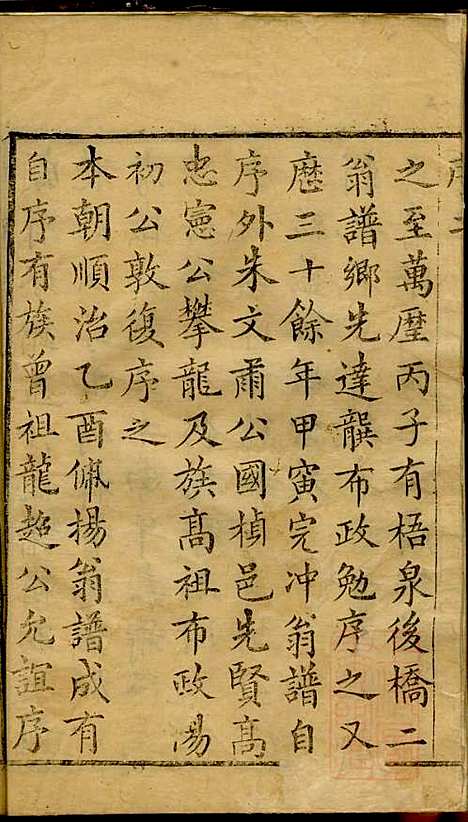 之至萬歷丙子有梧泉後橋二
翁譜鄉先達龔布政勉序之又
歷三十餘年甲寅完冲翁譜自
序外朱文肅公國楨邑先賢高
忠憲公攀龍及族高祖布政湯
初公敦復序之
本朝順治乙酉佩揚翁譜成有
自序有族曾祖龍超公允誼序